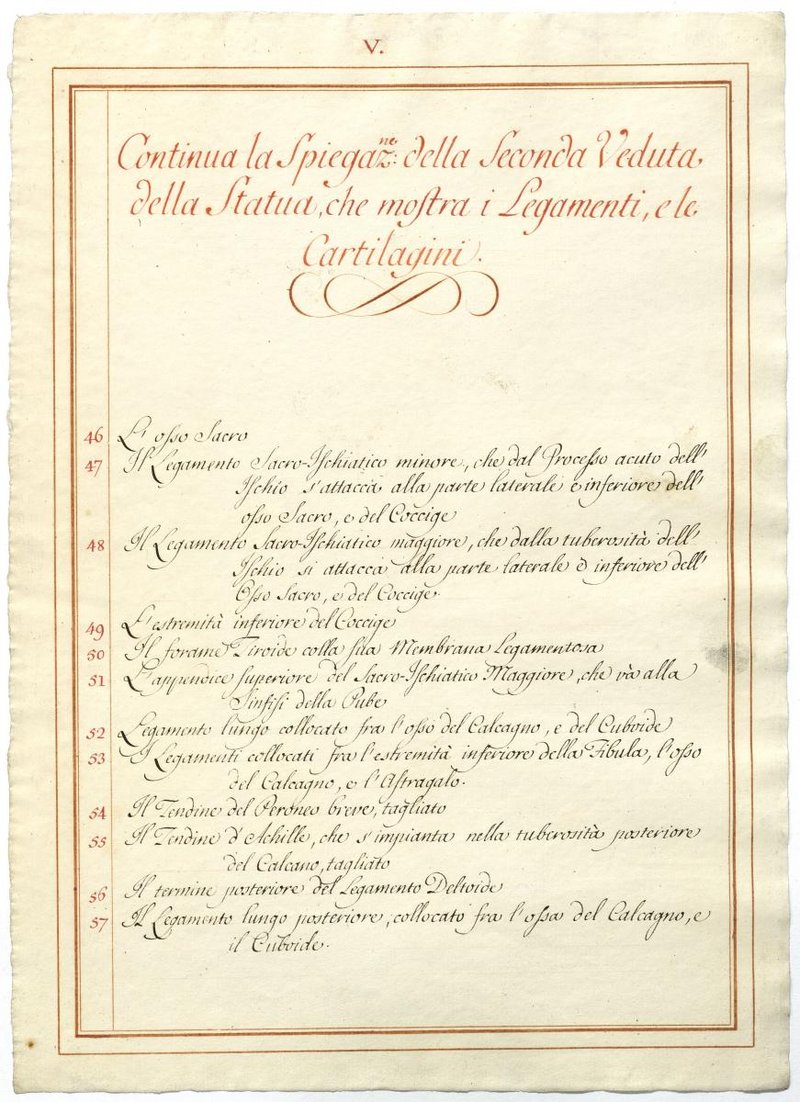 V.
Continua la Spiegaz:ne della Seconda Veduta
della Statua, che mostra i Legamenti, e le
Cartilagini.
46 L'osso Sacro
47 Il Legamento Sacro-Ischiatico minore, che dal Processo acuto dell'
Ischio s'attacca alla parte laterale e inferiore dell'
osso Sacro, e del Coccige
48 Il Legamento Sacro-Ischiatico maggiore, che dalla tuberosità dell'
Ischio si attacca alla parte laterale e inferiore dell'
Osso Sacro, e del Coccige.
49 L'estremità inferiore del Coccige
50 Il forame Tiroide colla sua Membrana Legamentosa
51 L'appendice superiore del Sacro-Ischiatico Maggiore, che và alla
Sinfisi della Pube
52 Legamento lungo collocato fra l'osso del Calcagno, e del Cuboide
53 I Legamenti collocati fra l'estremità inferiore della Fibula, l'osso
del Calcagno, e l'Astragalo.
54 Il Tendine del Peroneo breve, tagliato
55 Il Tendine d'Achille, che s'impianta nella tuberosità posteriore
del Calcano, tagliato
56 Il termine posteriore del Legamento Deltoide
57 Il Legamento lungo posteriore, collocato fra l'ossa del Calcagno, e
il Cuboide.